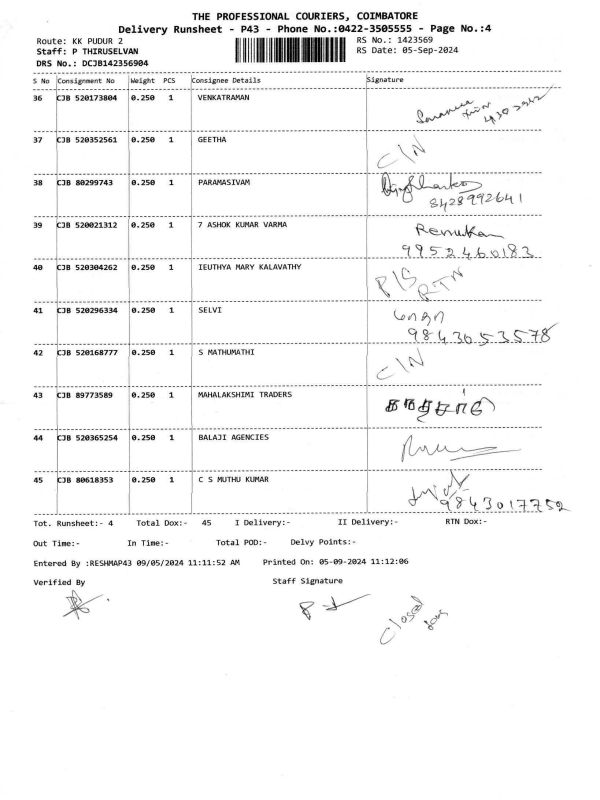 THE PROFESSIONAL COURIERS, COIMBATORE
Delivery Runsheet - P43 - Phone No.:0422-3505555 - Page No.:4
Route: KK PUDUR 2 RS No.: 1423569
Staff: P THIRUSELVAN RS Date: 05-Sep-2024
DRS No.: DCJB142356904
S No Consignment No Weight PCS Consignee Details Signature
36 CJB 520173804 0.250 1 VENKATRAMAN
37 CJB 520352561 0.250 1 GEETHA
C/N
38 CJB 80299743 0.250 1 PARAMASIVAM
8428992641
39 CJB 520021312 0.250 1 7 ASHOK KUMAR VARMA Renuka
9952460183
40 CJB 520304262 0.250 1 IEUTHYA MARY KALAVATHY
P/S
RTN
41 CJB 520296334 0.250 1 SELVI
9843053578
42 CJB 520168777 0.250 1 S MATHUMATHI
C/N
43 CJB 89773589 0.250 1 MAHALAKSHIMI TRADERS
44 CJB 520365254 0.250 1 BALAJI AGENCIES
45 CJB 80618353 0.250 1 C S MUTHU KUMAR
9843017752
Tot. Runsheet:- 4 Total Dox:- 45 I Delivery:- II Delivery:- RTN Dox:-
Out Time:- In Time:- Total POD:- Delvy Points:-
Entered By :RESHMAP43 09/05/2024 11:11:52 AM Printed On: 05-09-2024 11:12:06
Verified By Staff Signature
Closed